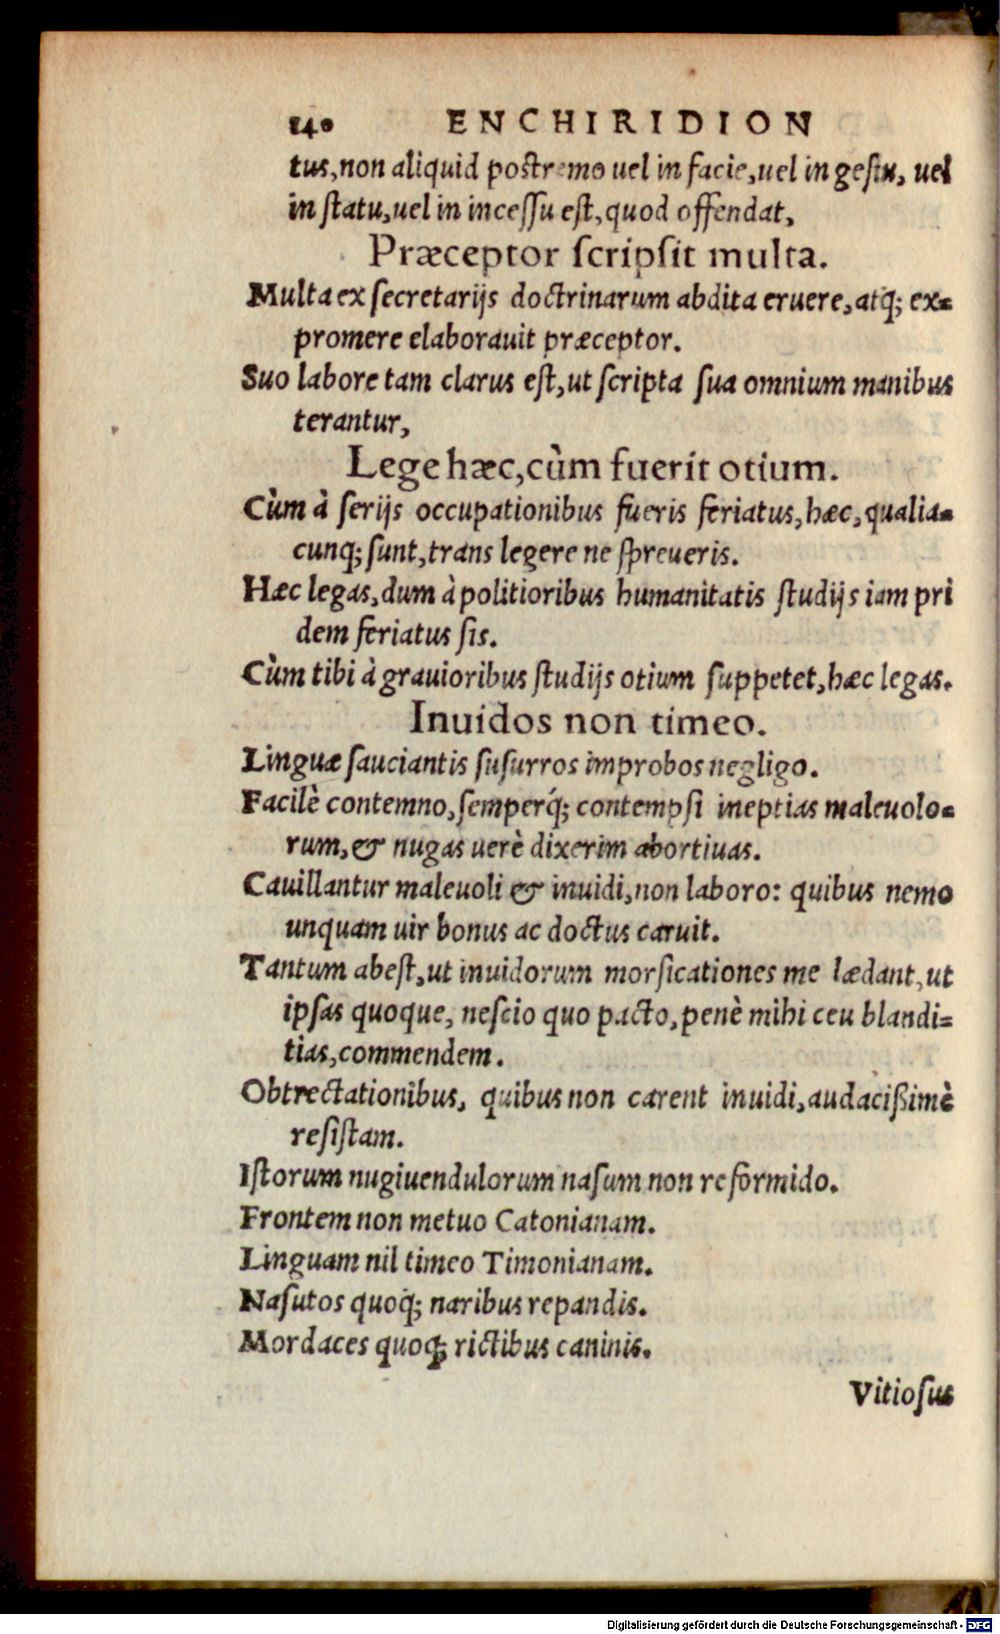 140 ENCHIRIDION
tus, non aliquid postremo uel in facie, uel in gestu, uel
in statu, uel in incessu est, quod offendat,
Præceptor scripsit multa.
Multa ex secretarijs doctrinarum abdita eruere, atq; ex=
promere elaborauit præceptor.
Suo labore tam clarus est, ut scripta sua omnium manibus
terantur,
Lege hæc, cùm fuerit otium.
Cùm à serijs occupationibus fueris feriatus, hæc, qualia=
cunq; sunt, trans legere ne spreueris.
Hæc legas, dum à politioribus humanitatis studijs iam pri
dem feriatus sis.
Cùm tibi à grauioribus studijs otium suppetet, hæc legas.
Inuidos non timeo.
Linguæ sauciantis susurros improbos negligo.
Facilè contemno, semperq́; contempsi ineptias maleuolo=
rum, & nugas uerè dixerim abortiuas.
Cauillantur maleuoli & inuidi, non laboro: quibus nemo
unquam uir bonus ac doctus caruit.
Tantum abest, ut inuidorum morsicationes me lædant, ut
ipsas quoque, nescio quo pacto, penè mihi ceu blandi=
tias, commendem.
Obtrectationibus, quibus non carent inuidi, audacißimè
resistam.
Istorum nugiuendulorum nasum non reformido.
Frontem non metuo Catonianam.
Linguam nil timeo Timonianam.
Nasutos quoq; naribus repandis.
Mordaces quoq; rictibus caninis.
Vitiosus
Digitalisierung gefördert durch die Deutsche Forschungsgemeinschaft - DFG